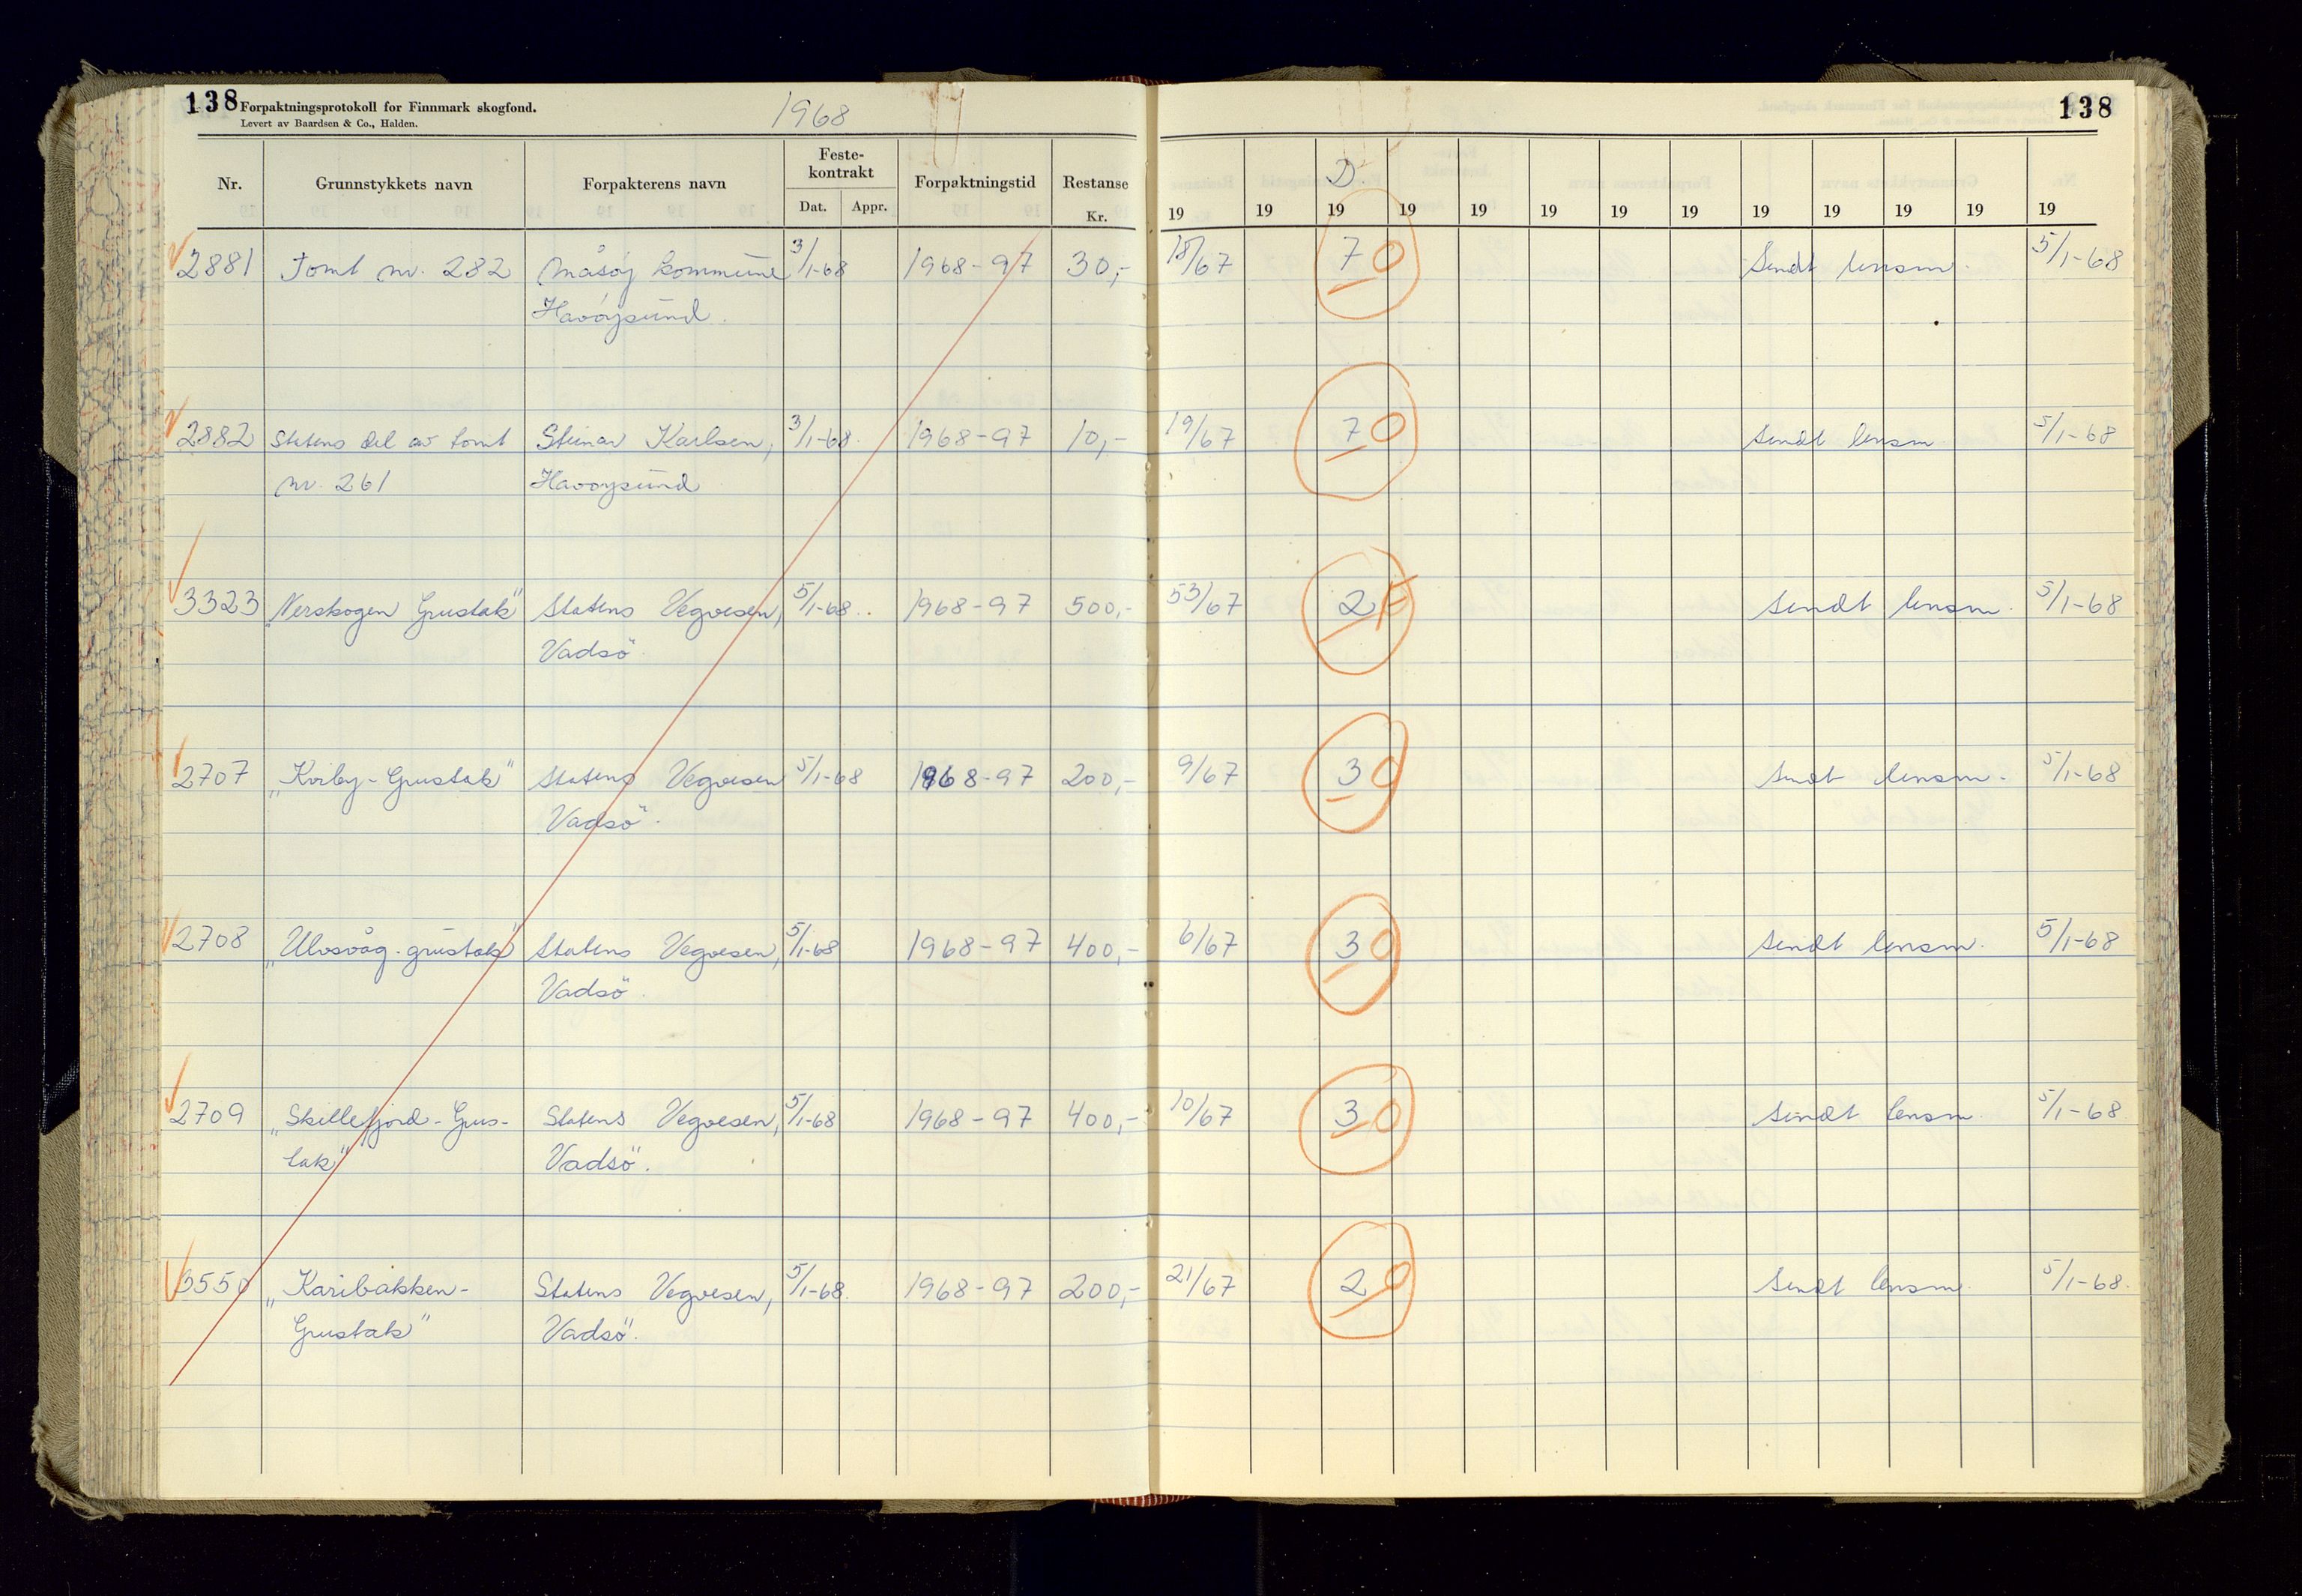 138 Forpaktningsprotokoll for Finnmark skogfond. 1968 138
Levert av Baardsen & Co., Halden.
Nr. Grunnstykkets navn Forpakterens navn Feste-kontrakt Dat. Appr. Forpaktningstid Restanse Kr. D
19 19 19 19 19 19 19 19 19 19 19 19 19
2881 Tomt nr. 282 Måsøy kommune 3/1-68 1968-97 30,- 18/67 70 Sendt lensm. 5/1-68
Havøysund.
2882 Statens del av tomt Steinar Karlsen, 3/1-68. 1968-97 10,- 19/67 70 Sendt lensm 5/1-68
nr. 261 Havøysund
3323 „Nerskogen Grustak" Statens Vegvesen, 5/1-68.. 1968-97 500,- 53/67 2 Sendt lensm. 5/1-68
Vadsö.
2707 „Kviby-Grustak" Statens Vegvesen 5/1-68 1968-97 200,- 9/67 30 Sendt lensm. 5/1-68
Vadsö.
2708 „Ulvsvåg-grustak" Statens Vegvesen, 5/1-68 1968-97 400,- 6/67 30 Sendt lensm. 5/1-68
Vadsö.
2709 „Skillefjord-Grus- Statens Vegvesen, 5/1-68 1968-97 400,- 10/67 30 Sendt lensm. 5/1-68
tak" Vadsö.
3550 „Karibakken- Statens Vegvesen, 5/1-68. 1968-97 200,- 21/67 20 Sendt lensm. 5/1-68.
Grustak" Vadsö.